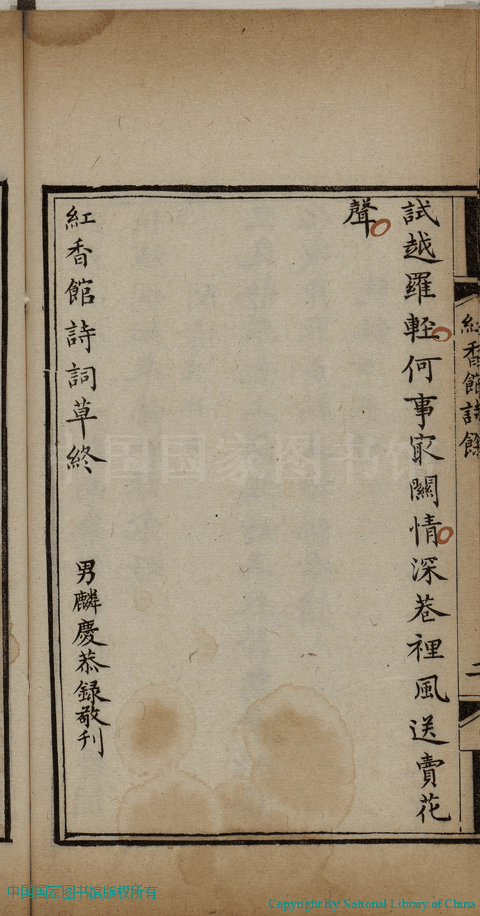 試越羅輕何事冣關情深巷裡風送賣花
聲
紅香館詩詞草終
男麟慶恭録敬刊
紅香館詩餘
二
中国国家图书馆
中国国家图书馆版权所有
Copyright By National Library of China